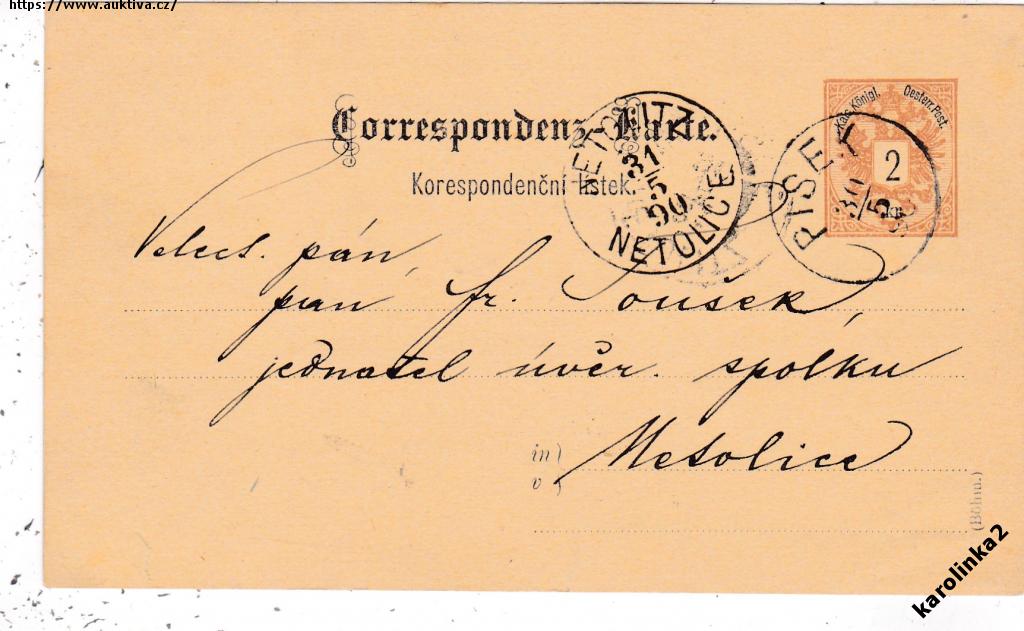 https://www.auktiva.cz/
Kais. Königl. Oesterr. Post.
2
Correspondenz-Karte.
Korespondenční lístek.
NETOLITZ
31
5
90
NETOLICE
PISEK
30/5
Velect. pán,
pan Fr. Soušek,
jednatel úvěr. spolku
in)
v) Netolice
(Böhm.)
karolinka2